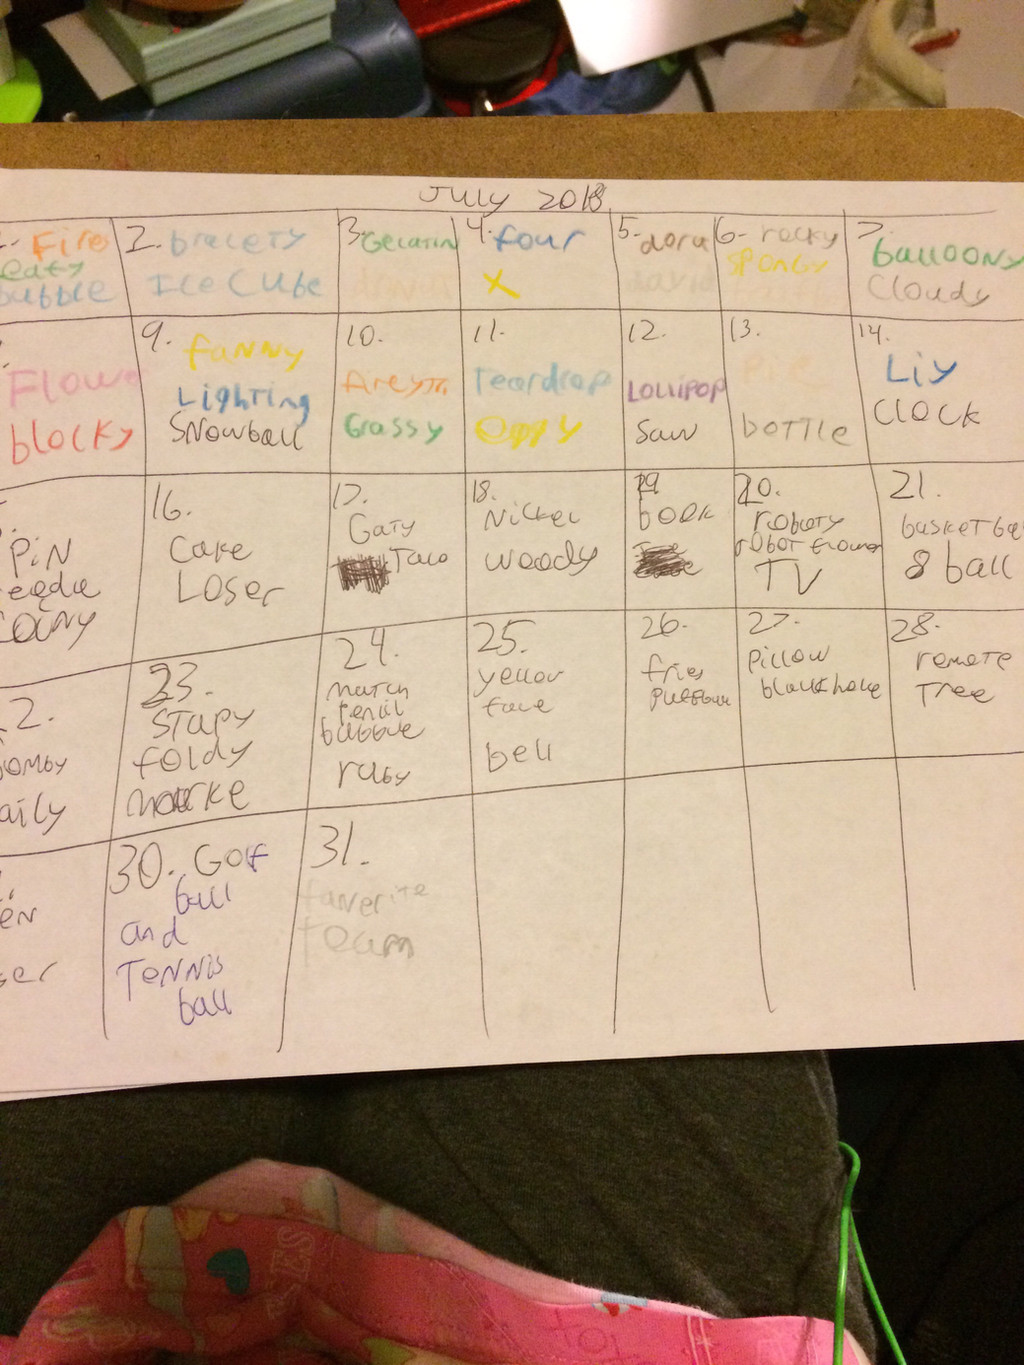 July 2018
Fire
eaty
bubble
2. bracety
Ice Cube
3. Gelatin
donut
4. four
X
5. dora
david
6- rocky
spongy
7.
balloony
Cloudy
Flow
blocky
9.
fanny
Lighting
Snowball
10.
fireyjr.
Grassy
11.
Teardrop
eggy
12.
LoLLipop
saw
13.
Pie
bottle
14.
Liy
Clock
PiN
eedle
Coiny
16.
Cake
Loser
17.
Gaty
Taco
18.
Nickel
woody
19
book
20.
roboty
robot flower
TV
21.
basket ba
8 ball
2.
omby
aily
23.
Stapy
foldy
24.
match
pencil
bubble
ruby
25.
yellow
face
bell
26.
fries
puffball
27.
pillow
blackhole
28.
remote
Tree
en
ser
30. Golf
ball
and
Tennis
ball
31.
faverite
team